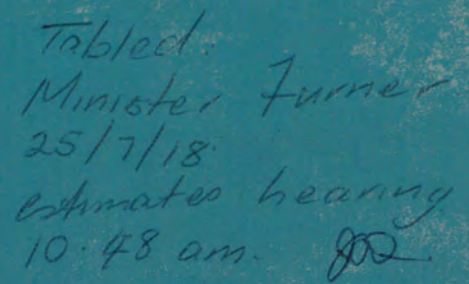 Tabled:
Minister Furner
25/7/18
estimates hearing
10.48 am.